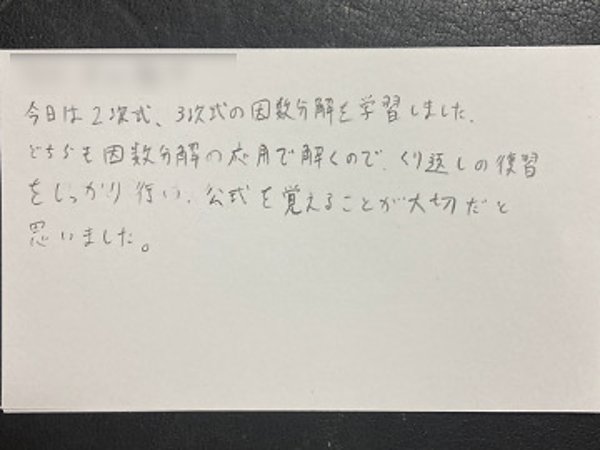 今日は2次式、3次式の因数分解を学習しました.
どちらも因数分解の応用で解くので、くり返しの復習
をしっかり行い、公式を覚えることが大切だと
思いました。